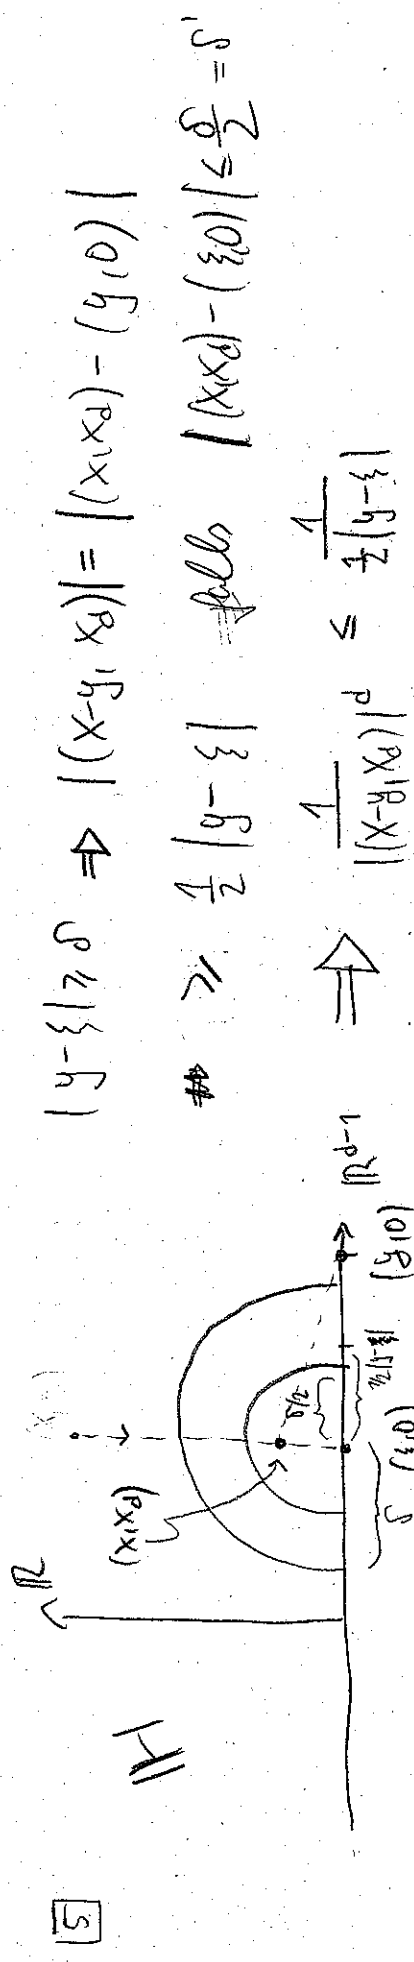 5
ℍ
ℝ
(x,x_d)
δ/2
½|y-ξ|
(ξ,0)
δ
(y,0)
ℝ^{d-1}
|y-ξ| ≥ δ ⇒ |(x-y, x_d)| = |(x,x_d) - (y,0)|
≥ ½ |y-ξ| falls |(x,x_d) - (ξ,0)| ≤ δ/2 = δ'
⇒ 1/|(x-y,x_d)|^d ≤ 1/(½|y-ξ|)